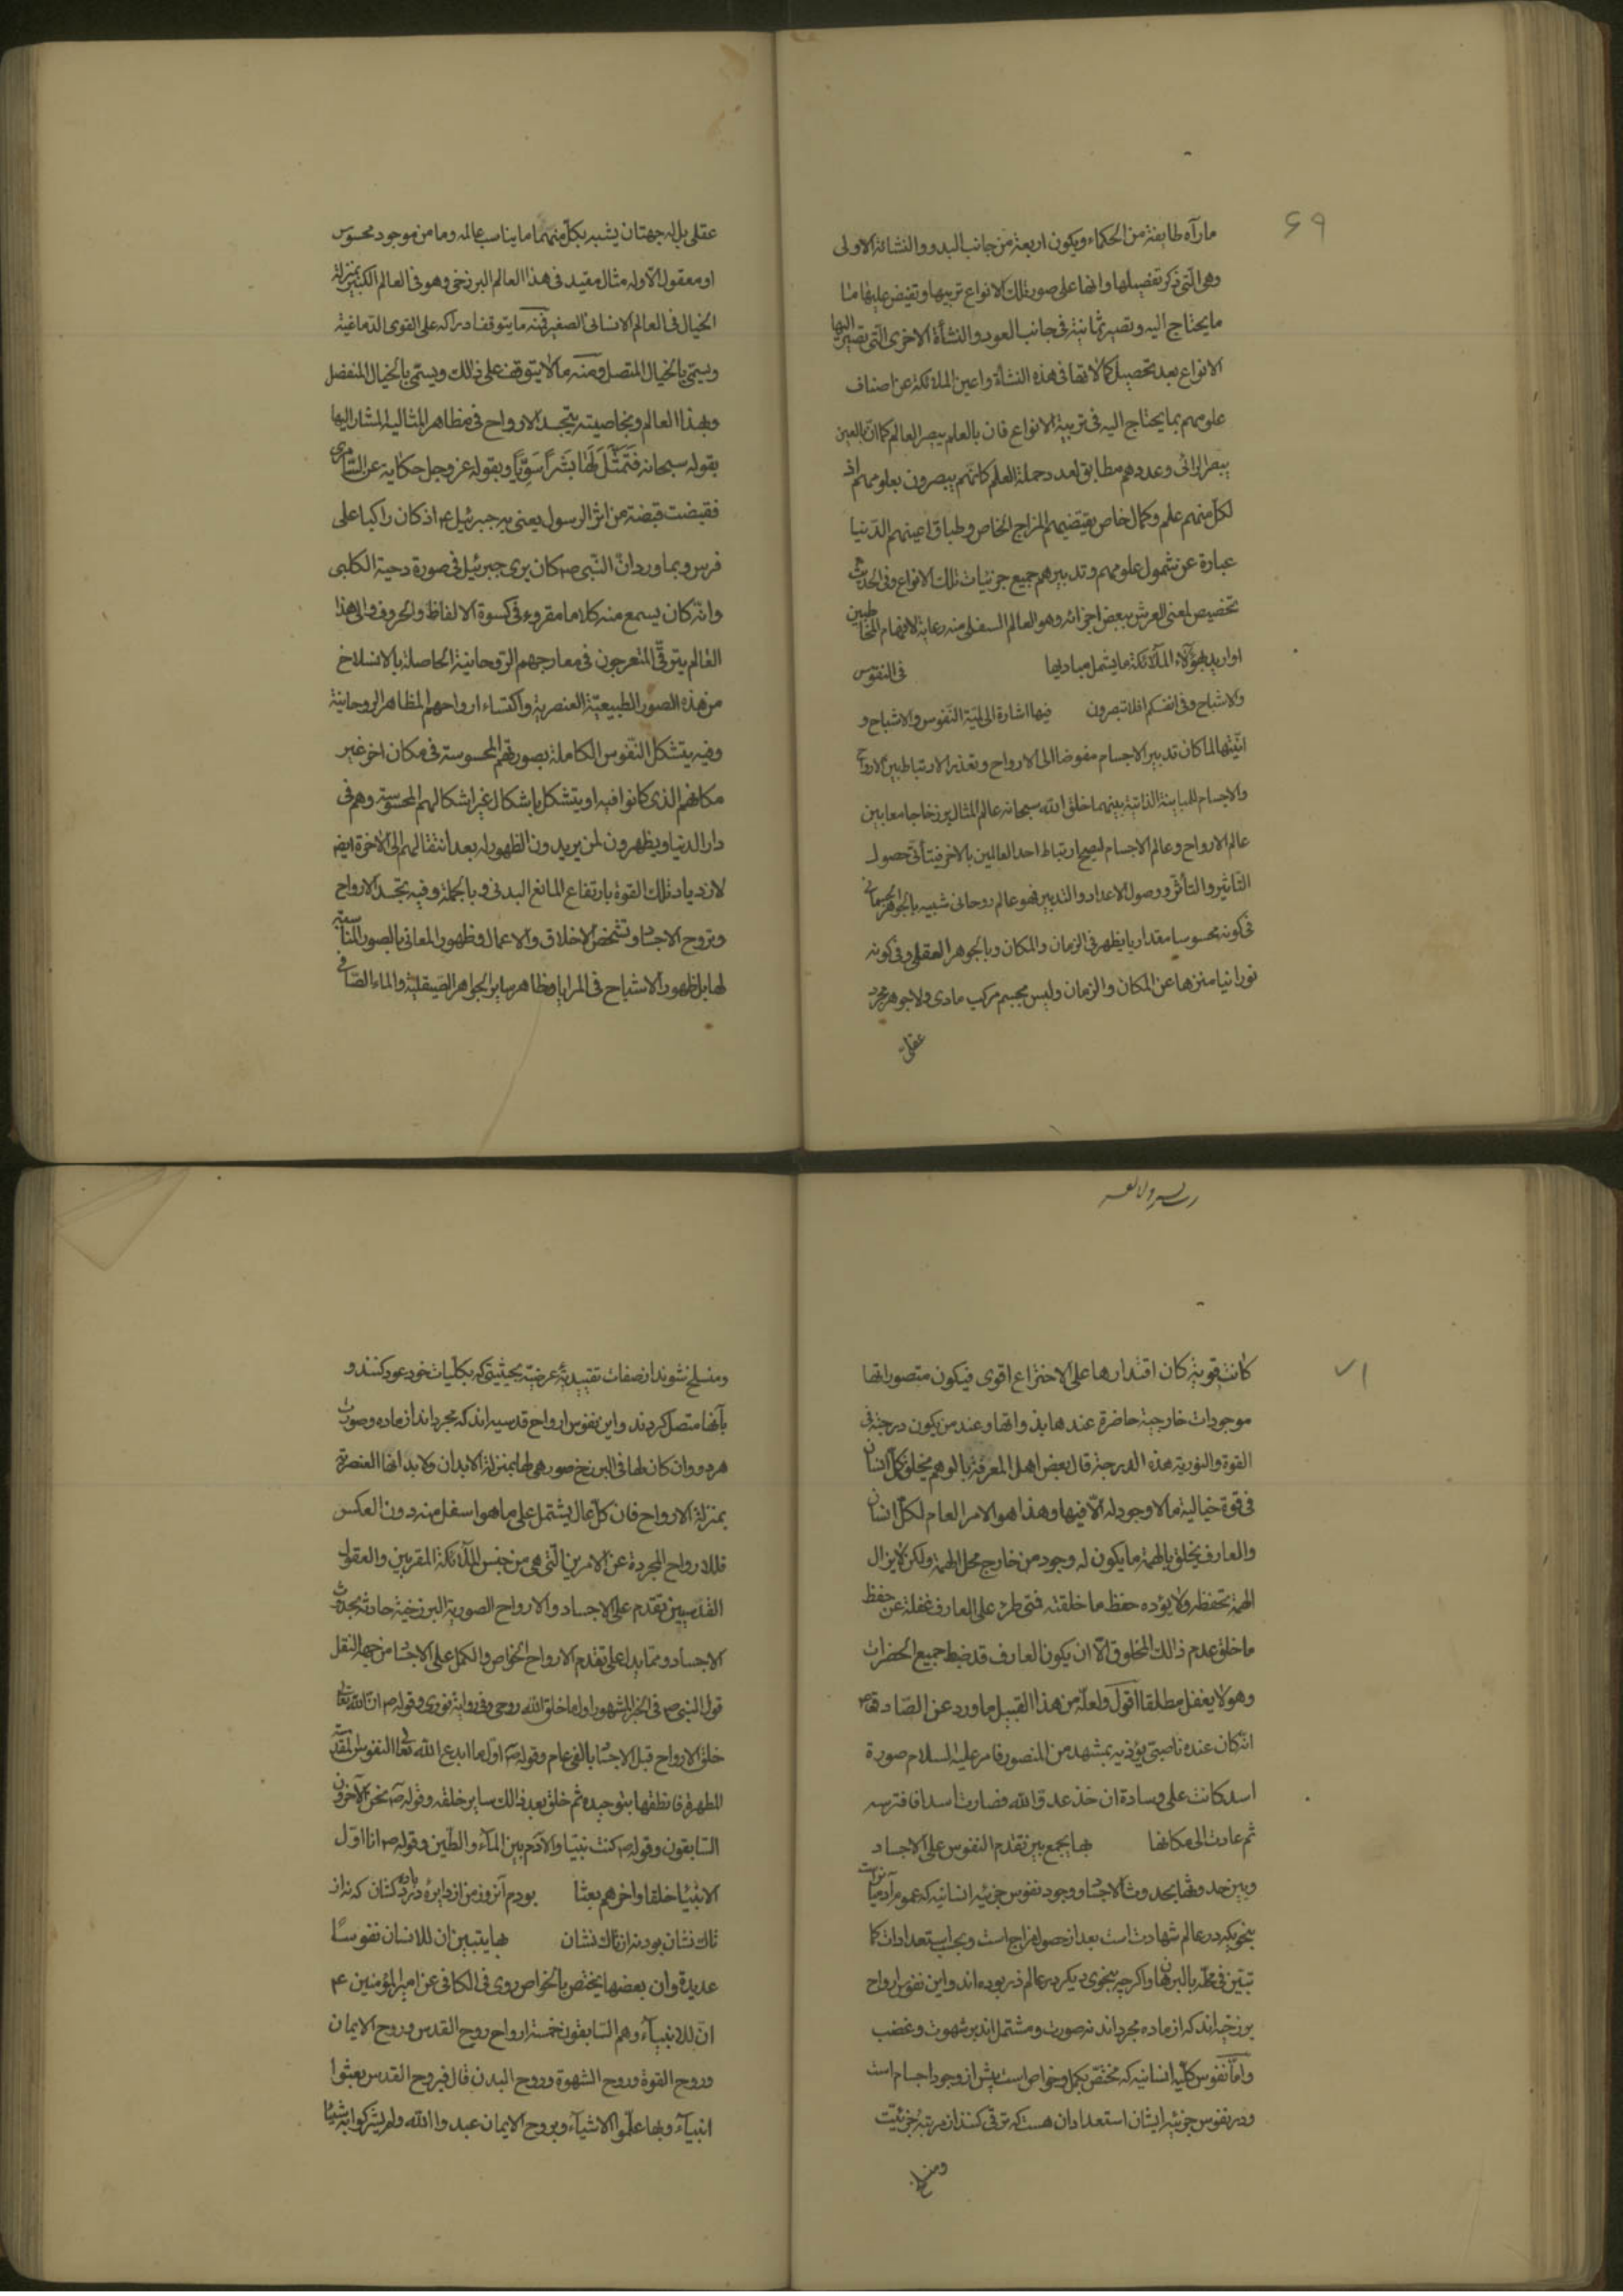 ۶۹
مارآه طایفة من الحکماء ویکون اربعة من جانب البدو والنشائة الاولی
وهی الّتی ذکر تفصیلها وانها علی صور تلک الانواع تربیها وتفیض علیها منا
ما یحتاج الیه وتصیر ثمانیة فی جانب العود والنشأة الاخری الّتی تصیر الیها
الانواع بعد تحصیل کمالاتها فی هذه النشأة واعین الملائکة عن اصناف
علومهم بما یحتاج الیه فی تربیة الانواع فان بالعلم یبصر العالم کما انّ بالعین
یبصر الرائی وعددهم مطابق لعدد حملة العلم کانّهم یبصرون بعلومهم اذ
لکلّ منهم علم وکمال خاص یقتضیهم المزاج الخاص وطباق اعینهم الدّنیا
عبارة عن شمول علومهم وتدبیرهم جمیع جزئیات تلک الانواع وفی الحدیث
تخصیص لمعنی العرش ببعض اجزائه وهو العالم السفلی منه رعایة لافهام المخاطبین
او ارید بهؤلاء الملآئکة ما یشمل مبادیها فی النفوس
والاشباح وفی انفسکم افلا تبصرون فیها اشارة الی لمّیّة النّفوس والاشباح و
انّیّتها لما کان تدبیر الاجسام مفوضا الی الارواح وتعذر الارتباط بین الارواح
والاجسام للمباینة الذاتیة بینهما خلق الله سبحانه عالم المثال برزخا جامعا بین
عالم الارواح وعالم الاجسام لیصح ارتباط احد العالمین بالاخر فیتأتی حصول
التّاثیر والتأثّر ووصول الامداد والتدبیر فهو عالم روحانی شبیه بالجوهر الجسمانی
فی کونه محسوسا مقداریا یظهر فی الزمان والمکان وبالجوهر العقلی فی کونه
نورانیا منزها عن المکان والزمان ولیس بجسم مرکب مادی ولا جوهر مجرد
عقلی
عقلی بل له جهتان یشبه بکلّ منهما ما یناسب عالمه وما من موجود محسوس
او معقول الّا وله مثال مقید فی هذا العالم البرزخی وهو فی العالم الکبیر بمنزلة
الخیال فی العالم الانسانی الصغیر فمنه ما یتوقف ادراکه علی القوی الدّماغیة
ویسمّی بالخیال المتصل ومنه ما لا یتوقف علی ذلک ویسمّی بالخیال المنفصل
وبهذا العالم وبخاصیته یتجسد الارواح فی مظاهر المثالیة المشار الیها
بقوله سبحانه فَتَمَثَّلَ لَهَا بَشَراً سَوِیّاً وبقوله عز وجل حکایة عن السّامری
فقبضت قبضة من اثر الرسول یعنی به جبرئیل ع اذ کان راکبا علی
فرس وبما ورد انّ النّبی ص کان یری جبرئیل فی صورة دحیة الکلبی
وانّه کان یسمع منه کلاما مقروء فی کسوة الالفاظ والحروف والی هذا
العالم یترقّی المتعرجون فی معارجهم الرّوحانیة الحاصلة بالانسلاخ
من هذه الصور الطبیعیّة العنصریة واکتساء ارواحهم المظاهر الروحانیة
وفیه یتشکل النّفوس الکاملة بصورتهم المحسوسة فی مکان اخر غیر
مکانهم الذی کانوا فیه او یتشکل باشکال غیر اشکالهم المحسوسة وهم فی
دار الدنیا ویظهرون لمن یریدون الظهور له بعد انتقالهم الی الاخرة ایضه
لازدیاد تلک القوة بارتفاع المانع البدنی وبالجملة وفیه تجسد الارواح
وتروح الاجساد وتشخص الاخلاق والاعمال وظهور المعانی بالصور المناسبة
لها بل ظهور الاشباح فی المرایا ومظاهر سایر الجواهر الصّیقلیّة والماء الصّافی
۷۱
کانت قویة کان اقتدارها علی الاختراع اقوی فیکون متصوراتها
موجودات خارجیة حاضرة عندها بذواتها وعند من یکون درجته فی
القوة والنوریة هذه الدرجة قال بعض اهل المعرفة بالوهم یخلق کلّ انسان
فی قوة خیالیة ما لا وجود له الّا فیها وهذا هو الامر العام لکلّ انسان
والعارف یخلق بالهمة ما یکون له وجود من خارج محل الهمة ولکن لا یزال
الهمة تحفظه ولا یؤده حفظ ما خلقته فمتی طرء علی العارف غفلة عن حفظ
ما خلق عدم ذلک المخلوق الّا ان یکون العارف قد ضبط جمیع الحضرات
وهو لا یغفل مطلقا اقول ولعلّه من هذا القبیل ما ورد عن الصّادق ع
انّه کان عنده ناصبیّ یؤذیه بمشهد من المنصور فامر علیه السلام صورة
اسد کانت علی وسادة ان خذ عدوّ الله فصارت اسدا فافترسه
ثم عادت الی مکانها بها یجمع بین تقدم النفوس علی الاجساد
وبین حدوثها بحدوث الاجساد وجود نفوس جزئیه انسانیه که عموم آدمیان راست
بنحویکه در عالم شهادت است بعد از حصول مزاج است وبحسب استعدادات کما
تبیّن فی محلّه بالبرهان واگرچه بنحوی دیگر در عالم ذر بوده اند واین نفوس ارواح
برزخیه اند که از ماده مجرد اند نه صورت ومشتمل اند بر شهوت وغضب
وامّا نفوس کلّیه انسانیه که مختصّ بکمل وخواص است پیش از وجود اجسام است
ودر نفوس جزئیه ایشان استعداد آن هست که ترقی کنند از مرتبه جزئیّت
ومنسلخ
ومنسلخ شوند از صفات تقییدیّه عرضیّه بحیثیتی که بکلّیات خود عود کنند و
بآنها متصل گردند واین نفوس ارواح قدسیه اند که مجرد اند از ماده وصورت
هر دو وان کان لها فی البرزخ صور هی لها بمنزلة الابدان ولابدانها العنصریّة
بمنزلة الارواح فان کلّ عال یشتمل علی ما هو اسفل منه دون العکس
فللارواح المجردة عن الامرین الّتی هی من جنس الملآئکة المقربین والعقول
القدسیین تقدم علی الاجساد والارواح الصوریة البرزخیة حادثة بحدوث
الاجساد ومما یدل علی تقدم الارواح الخواص والکمل علی الاجساد من جهة النقل
قول النبی ص فی الخبر المشهور اول ما خلق الله روحی وفی روایة نوری وقوله ص ان الله تعالی
خلق الارواح قبل الاجساد بالفی عام وقوله ص اول ما ابدع الله تعالی النفوس المقدسة
المطهرة فانطقها بتوحیده ثم خلق بعد ذلک سایر خلقه وقوله ص نحن الآخرون
السّابقون وقوله ص کنت نبیّا والآدم بین المآء والطّین وقوله ص انا اوّل
الانبیا خلقا واخرهم بعثا بودم آنروز من از دایرهٔ دردکشان که نه از
تاک نشان بود نه از تاک نشان بها یتبین ان للانسان نفوسًا
عدیدة وان بعضها یختص بالخواص روی فی الکافی عن امیر المؤمنین ع
انّ للانبیآء وهم السّابقون خمسة ارواح روح القدس وروح الایمان
وروح القوة وروح الشهوة وروح البدن قال فبروح القدس بعثوا
انبیآء وبها علّموا الاشیآء وبروح الایمان عبدوا الله ولم یشرکوا به شیئا